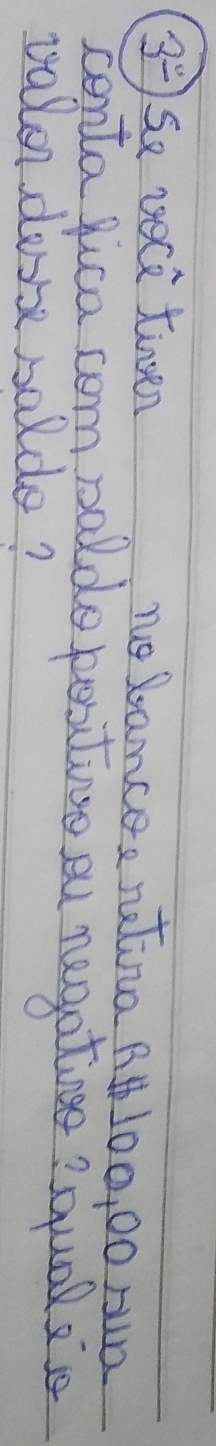 3ª Se você tiver no banco e retira R$ 100,00 sua
conta fica com saldo positivo ou negativo? qual é o
valor desse saldo?